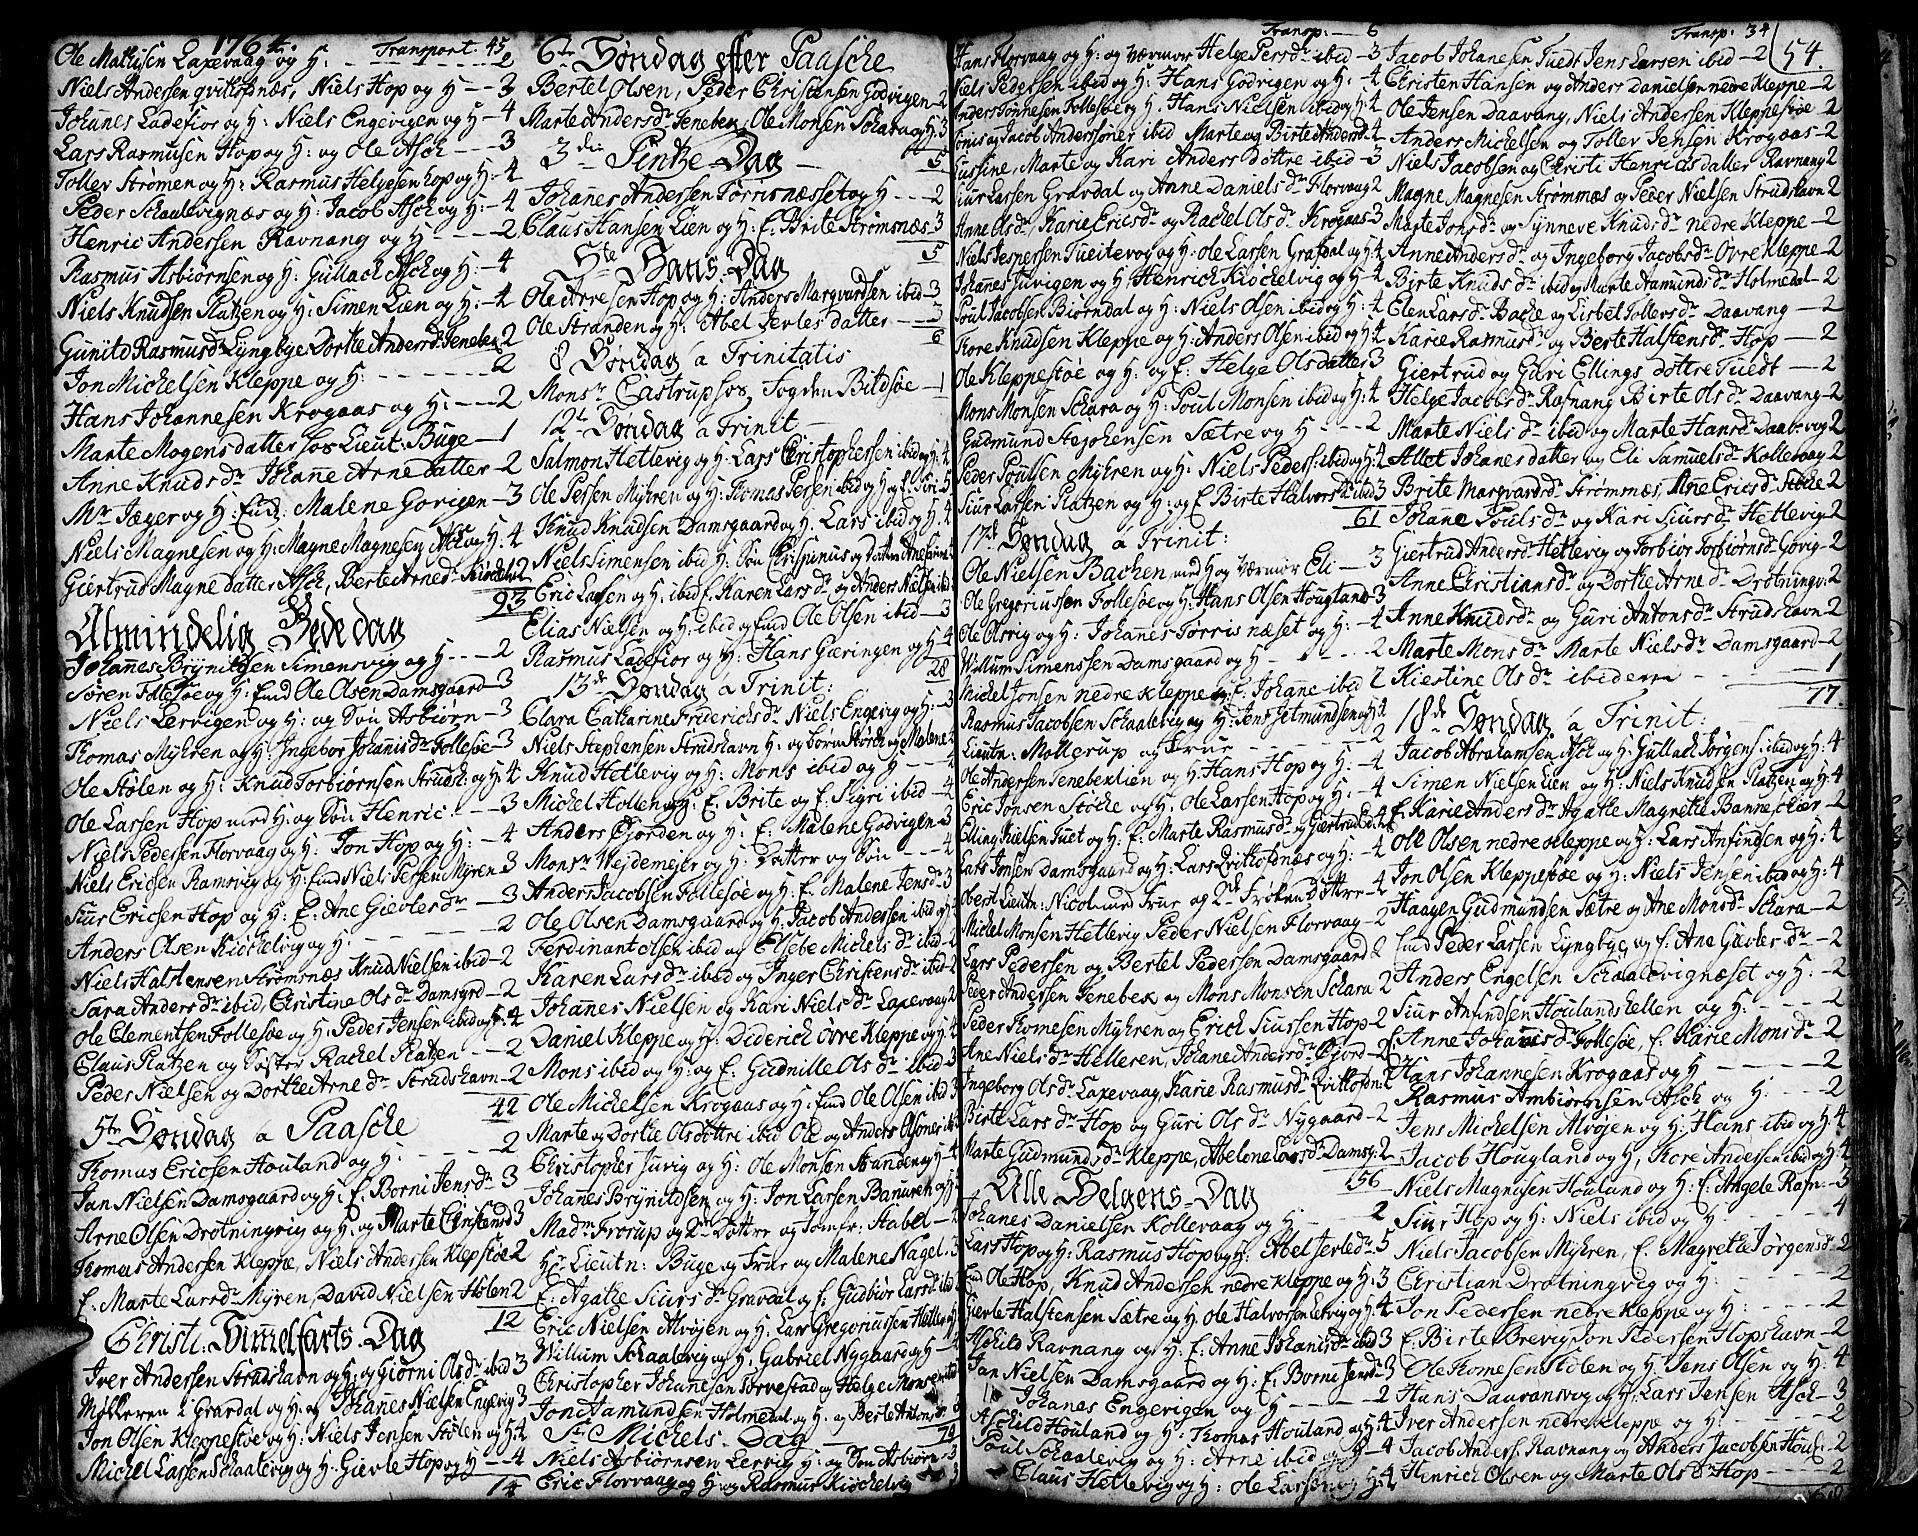 1764.
Transport. 45
Ole Mathisen Laxevaag og H: - - - - 2
Niels Andersen qvitofnæs, Niels Hop og H - 3
Johanes Ladefior og H: Niels Engevigen og H - 4
Lars Rasmusen Hop og H: og Ole Asch - - 3
Tollev Strømen og H: Rasmus Helgesen hop og H: - 4
Peder Schaalevignæs og H: Jacob Asch og H: - 4
Henric Andersen Ravnang og H - - - - 2
Rasmus Asbiørnsen og H: Gullach Asch og H: - 4
Niels Knudsen Platzen og H: Simen Lien og H: - 4
Gunild Rasmusd: Lyngbye Dorthe Andersd: Jenebex 2
Jon Michelsen Kleppe og H: - - - - - - 2
Hans Johannesen Krogaas og H: - - - 2
Marte Mogensdatter hos Lieut: Buge - 1
Anne Knudsdr Johanne Arnedatter - 2
Mr Jæger og H: Malene Gorigen - 3
Niels Magnesen og H: Magne Magnesen Asch og H: 4
Giertrud Magnedatter Asch, Berte Arned: 2
93
Almindelig Bededag
Johannes Brynildsen Simensvig og H - - - 2
Søren Follesøe og H: Ole Olsen Damsgaard - 3
Niels Lervigen og H: og Søn Asbiørn - 3
Thomas Myhren og H: Ingebor Johanisdr Follesøe - 3
Ole Stølen og H: Knud Torbiørnsen Strudsh: og H: 4
Ole Larsen Hop med H: og Søn Henric - 3
Niels Pedersen Florvaag og H: Jon Hop og H: - 4
Niels Ericsen Ramsvig og H: Niels Persen Myren - 3
Siur Ericsen Hop og H: E: Ane Gievlesdr - 3
Anders Olsen Kiøckelvig og H: - - - - - 2
Niels Halstensen Strømsnæs Knud Nielsen ibid - 2
Sara Andersdr ibid, Christine Olsdr Damsgrd - 2
Ole Clementsen Follesøe og H: Peder Jensen ibid og H: 4
Claus Platzen og Søster Rachel Platzen - - 2
Peder Nielsen og Dorthe Arnedr Strudshavn - 2
42
5te Søndag a Paasche
Thomas Ericsen Houland og H: - - - - - 2
Jan Nielsen Damsgaard og H: E: Borni Jensdr 3
Arne Olsen Drotningvig og H: og Marte Christensd 3
Thomas Andersen Kleppe, Niels Andersen Klepsøe 2
E: Marte Larsdr Myren, David Nielsen Holen 2
12
Christi Himmelfarts Dag
Iver Andersen Strudshavn og H: og Giorni Olsdr ibid 3
Mølleren i Gravdal og H: og Johanes Nielsen Engevig 3
Jon Olsen Kleppestøe og H: Niels Jensen Stølen og H: 4
Michel Larsen Schaalevig og H: Gievle Hop og H - 4
14
6te Søndag efter Paasche
Bertel Olsen, Peder Christensen Godvigen - 2
Marte Andersdr Jenebex, Ole Monsen Schara og H: 3
5
3die Pintze-Dag
Johanes Andersen Torrisnæsset og H - - 2
Claus Hansen Lien og H: E. Brite Strømsnæs 3
5
Ste Hans Dag
Ole Arnesen Hop og H: Anders Marqvardsen ibid - 3
Ole Stranden og H: Abel Jerlesdatter - - 3
6
8 Søndag a Trinitatis
Monsr Castrup hos Fogden Bildsøe - 1
12te Søndag a Trinit -
Salmon Hetlevig og H: Lars Christophersen ibid og H: 4
Ole Persen Myhren og H: Thomas Persen ibid og H: og E: Siri 5
Knud Knudsen Damsgaard og H. Lars ibid og H. 4
Niels Simensen ibid H: Søn Chrispinus og datter
Eric Larsen og H: ibid E. Karen Larsdr og Anders Nielsen ibid
Elias Nielsen og H: ibid og Ole Olsen ibid - 3
Rasmus Ladefior og H: Hans Gæringen og H 4
28
13de Søndag a Trinit:
Clara Catharine Frederichsdr Niels Engevig og H: - 3
Niels Stephensen Strudshavn H: og børn Storch og Malene
Knud Hetlevig og H: Mons ibid og H - - 4
Michel Hollen og H: E. Brite og E. Sigri ibid - 4
Anders Giorden og H: E: Malene Godvigen - 3
Monsr Wejdemejer og H: Datter og Søn - - - 4
Anders Jacobsen Follesøe og H: E. Malene Jensdr 3
Ole Olsen Damsgaard og H: Jacob Andersen ibid og H:
Ferdinant olsen ibid og Elsebe Michelsdr ibid - 2
Karen Larsdr ibid og Inger Christensdr ibid - 2
Johanes Nielsen og Kari Nielsdr Laxevaag 2
Daniel Kleppe og H: Diderich Ovre Kleppe og H: 4
Mons ibid og H: og E. Gudnille Olsdr ibid - 3
Ole Michelsen Krogaas og H: Ole Olsen ibid 3
Marte og Dorthe Olsdøttre ibid Ole og Anders Olsøner ibid
Christopher Juvig og H: Ole Monsen Stranden og H - 4
Johanes Brynildsen og H: Jon Larsen Banuren og H
Madm Frorup og 2de Døttre og Jomfr: Stabel -
Hr Lieutn: Buge og Frue og Malene Nagel. 3
E. Agathe Siursdr Gravdal og E. Gudbiør Larsdr ibid
Eric Nielsen Alvøgen og H: Lars Gregoriussen Hetlevig
Willum Schaalevig og H: Gabriel Nygaard og H -
Christopher Johanesen Torvestad og Helge Monsen ibid
Jon Aamundsen Holmedal og H: og Berte Antonsdr 3
79
St: Michels-Dag
Niels Asbiørnsen Lervig og H: og Søn Asbiørn - 3
Eric Florvaag og H: og Rasmus Kiøckelvig 3
Transp: - 6
Hans Florvaag og H: og Værmor Helge Persdr ibid - 3
Niels Pedersen ibid og H: Hans Godvigen og H: - 4
Anders Tonnesen Follesøe og H: Hans Nielsen ibid og H: 4
Tonis og Jacob Andersøner ibid Marte og Birte Andersd: - 4
Sussine, Marte og Kari Anders døttre ibid - 3
Siur Larsen Gravdal og Anne Danielsdr Florvaag 2
Anne Olsdr, Karie Ericsdr og Rachel Olsdr Krogaas - 3
Niels Jespersen Tueitevog og H: Ole Larsen Gravdal og H: 4
Johanes Juvigen og H: Henrich Kiockelvig og H: - 4
Poul Jacobsen Biorndal og H: Niels Olsen ibid og H: 4
Thore Knudsen Kleppe og H: Anders Olsen ibid og H: 4
Ole Kleppestøe og H: og E: Helge Olsdatter 3
Mons Monsen Schara og H: Poul Monsen ibid og H: 4
Gudmund Stephensen Sætre og H - - - 2
Peder Poulsen Myhren og H: Niels Peders: ibid og H: 4
Siur Larsen Platzen og H: og E Birte Halvorsdr ibid 3
61
17de Søndag a Trinit:
Ole Nielsen Bachen med H og Værmor Eli - 3
Ole Gregoriussen Follesøe og H: Hans Olsen Hougland - 3
Ole Olsvig og H: Johanes Torrisnæset og H: - 4
Willum Simenssen Damsgaard og H - - - - 2
Michel Jonsen nedre Kleppe og E. Johane ibid 2
Rasmus Jacobsen Schaalevig og H: Jens Jetmundsen og H: 4
Lieutn: Mollerup og Frue - - - - - - 2
Ole Andersen Jenebexlien og H: Hans Hop og H: - 4
Eric Jonsen Stoche og H: Ole Larsen Hop og H: - 4
Elling Nielsen Tuet og H: E: Marte Rasmusdr og Giertrud 4
Lars Jonsen Damsgaard og H: Lars Qvitofdnæs og H: - 4
Oberst Lieutn: Nicol med Frue og 2de Frøken Døttre - 4
Michel Monsen Hetlevig Peder Nielsen Florvaag - 2
Lars Pedersen og Bertel Pedersen Damsgaard 2
Peder Andersen Jenebex og Mons Monsen Schara 2
Peder Thomesen Myhren og Erich Siurssen Hop - 2
Ane Nielsdr Helleren, Johane Andersdr Giord - 2
Ingeborg Olsdr Laxevaag Karie Rasmusdr Qvitofdn: 2
Birte Larsdr Hop og Guri Olsdr Nygaard - 2
Marte Gudmundsdr Kleppe, Abelone Larsdr Damsg: 2
56
Alle Helgens-Dag
Johanes Danielsen Kollevaag og H - - - - 2
Lars Hop og H: Rasmus Hop og H: Abel Jerledr 5
Ole Hop, Knud Andersen nedre Kleppe og H: 3
Gierle Halstensen Sætre og H: Ole Halvorsen Lervig og H: 4
Aschild Ravnang og H: E. Anne Johanisdr ibid 3
Jan Nielsen Damsgaard og H: E: Borni Jensdr - 3
Johanes Engevigen og H - - - - - 2
Aschild Houland og H: Thomas Houland og H: 4
Poul Schaalevig og H: Arne ibid og H - 4
Claus Hetlevig og H: Ole Larsen og H: 4
Transp: 34
54.
Jacob Johanesen Tuedt Jens Larsen ibid - 2
Christen Hansen og Anders Danielsen nedre Kleppe - 2
Ole Jensen Daavang, Niels Andersen Kleppestøe 2
Anders Michelsen og Tollev Jensen Krogaas - 2
Niels Jacobsen og Christi Henricsdatter Ravnang 2
Magne Magnesen Strømmæs og Peder Nielsen Strudshavn 2
Marte Jonsdr og Synneve Knudsdr nedre Kleppe - 2
Anne Andersdr og Ingeborg Jacobsdr Ovre Kleppe - 2
Birte Knudsdr ibid og Marte Aamundsdr Holmedal - 2
Elen Larsdr Bache og Lisbet Tollevsdr Daavang - 2
Karie Rasmusdr og Berte Halstensdr Hop - 2
Giertrud og Guri Ellings døttre Tuedt - - 2
Helge Jacobsdr Rafnang Birte Olsdr Daavang - 2
Marte Nielsdr ibid og Marte Hansdr Daavog 2
Allet Johanesdatter og Eli Samuelsdr Kollevaag 2
Brite Marqvardsdr Strømsnæs, Ane Ericsdr Stoche 2
Johane Poulsdr og Kari Siursdr Hetlevig - 2
Giertrud Andersdr Hetlevig og Torbiør Torbiørnsdr Govig - 2
Anne Christiansdr og Dorthe Arnedr Drotningv: 2
Anne Knudsdr og Guri Antonsdr Strudshavn - 2
Marte Monsdr Marte Nielsdr Damsgaard - 2
Kiestine Olsdr ibidem - - - - - 1
77.
18de Søndag a Trinit:
Jacob Abrahamsen Asch og H: Gullach Jørgens: ibid og H: 4
Simen Nielsen Lien og H: Niels Knudsen Platzen og H: 4
E. Karie Andersdr Agathe Magrethe Banneskiær - 2
Ole Olsen nedre Kleppe og H: Lars Anfindsen og H: 4
Jon Olsen Kleppestøe og H: Niels Jensen ibid og H: 4
Haagen Gudmundsen Sætre og Ane Monsdr Schara - 2
Peder Larsen Lyngbye, og E. Ane Gievlesdr - - 2
Anders Engelsen Schaalevignæset og H: - 2
Siur Anfindsen Houlandshellen og H: - - - 2
Anne Johanisdr Follesøe, E. Karie Monsdr - 2
Hans Johannesen Krogaas og H - - - - - 2
Rasmus Ambiørnsen Asch og H: - - - 2
Jens Michelsen Alvøjen og H: Heins ibid og H: 4
Jacob Hougland og H, Thore Andersen ibid og H: 4
Niels Magnusen Houland og H: E: Angele Rafn: - 3
Siur Hop og H: Niels ibid og H: - - - - 4
Niels Jacobsen Myhren, E. Magrethe Jørgensdr - 2
Christian Drotningvig og H: - - - - - 2
Jon Pedersen nedre Kleppe og H: - - - 2
E. Birte Brevig Jon Pedersen Hopshavn - 2
Ole Thomesen Stølen og H: Jens Olsen og H: 4
Hans Daavansvog og H: Lars Jensen Asch - 3
Iver Andersen nedre Kleppe og H: - - - - 2
Jacob Anders: Ravnang og Anders Jacobsen Houg: - 2
Hinrich Olsen og Marte Olsdr Hop - - - - 2